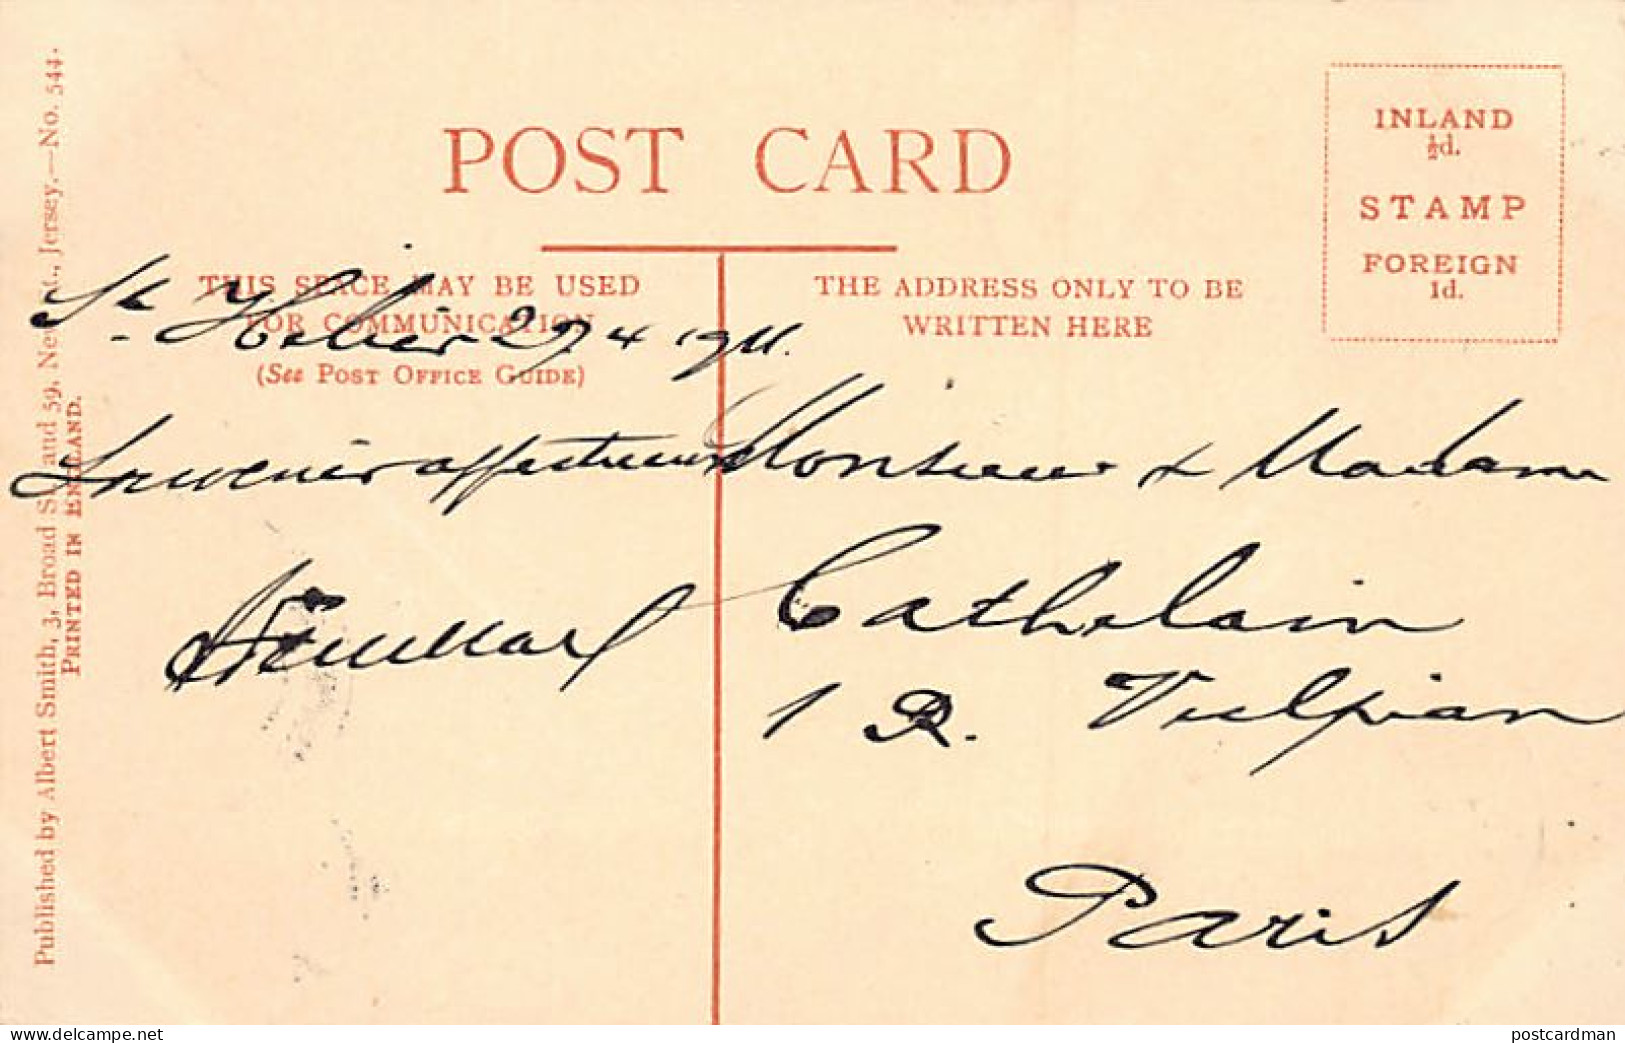 POST CARD
INLAND
½d.
STAMP
FOREIGN
1d.
THIS SPACE MAY BE USED
FOR COMMUNICATION
(See POST OFFICE GUIDE)
THE ADDRESS ONLY TO BE
WRITTEN HERE
St Helier 27 4 1911.
Souvenir affectueux
Monsieur & Madame
Cathelain
1 R. Vulpian
Paris
Published by Albert Smith, 3, Broad St. and 59, New St., Jersey.—No. 544.
PRINTED IN ENGLAND.
www.delcampe.net
postcardman